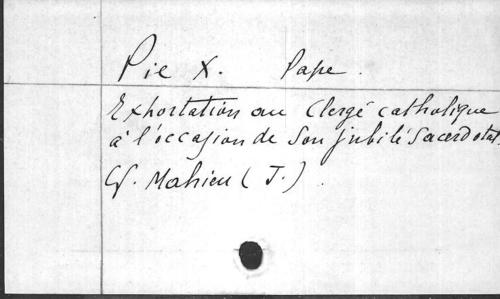 Pie X. Pape.
Exhortation au Clergé catholique
à l'occasion de son jubilé sacerdotal.
Cf. Mahieu (J.).